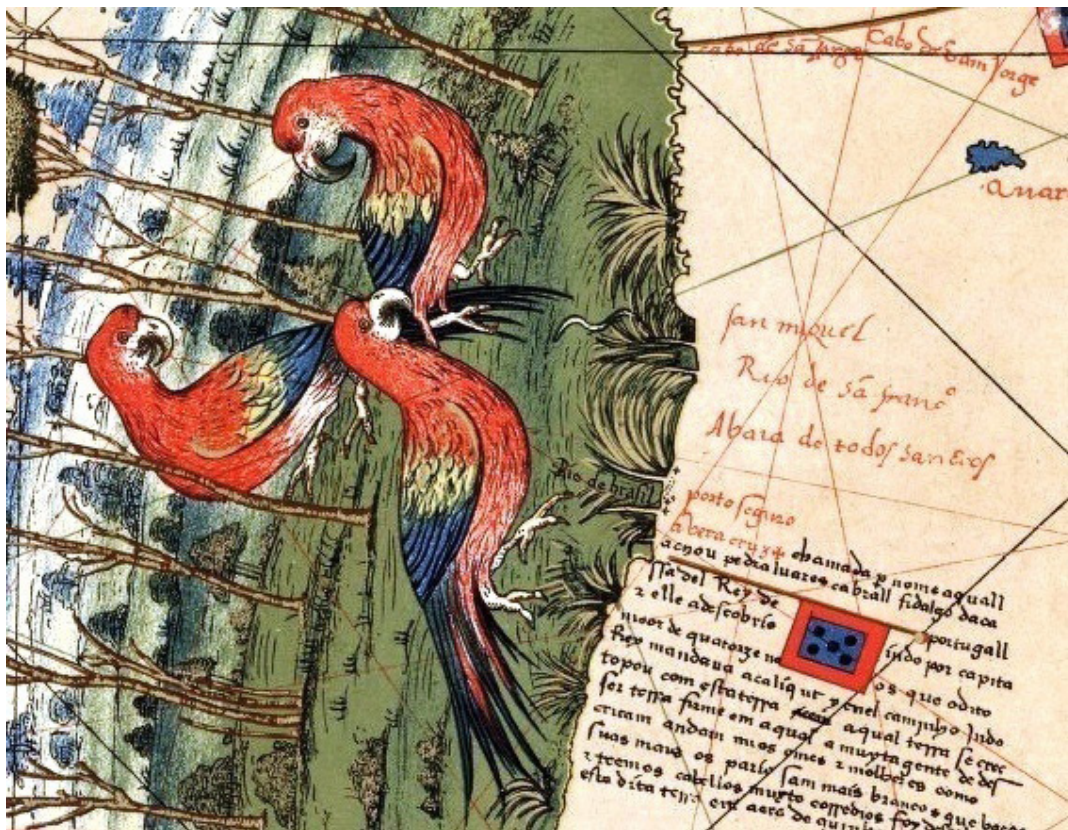 cabo de Sã Jorge
Cabo de Sam Jorge
san miguel
Rio de sã franc^o
Abaia de todos sanctos
Rio de brasil
porto seguro
a vera cruz
chamada p nome aquall
achou pedraluares cabrall fidalgo daca
ssa del Rey de portugall
z elle a descobrio indo por capita
moor de quatorze na os que o dito
Rey mandava a caliqut y enel caminho indo
topou com esta terra aqual terra se cree
ser terra firme em a qual a muyta gente de des
criçam andam nuos omes z molheres como
suas mais os pario sam mais brancos que
z teemos cabellos muyto corredios
esta dita terra